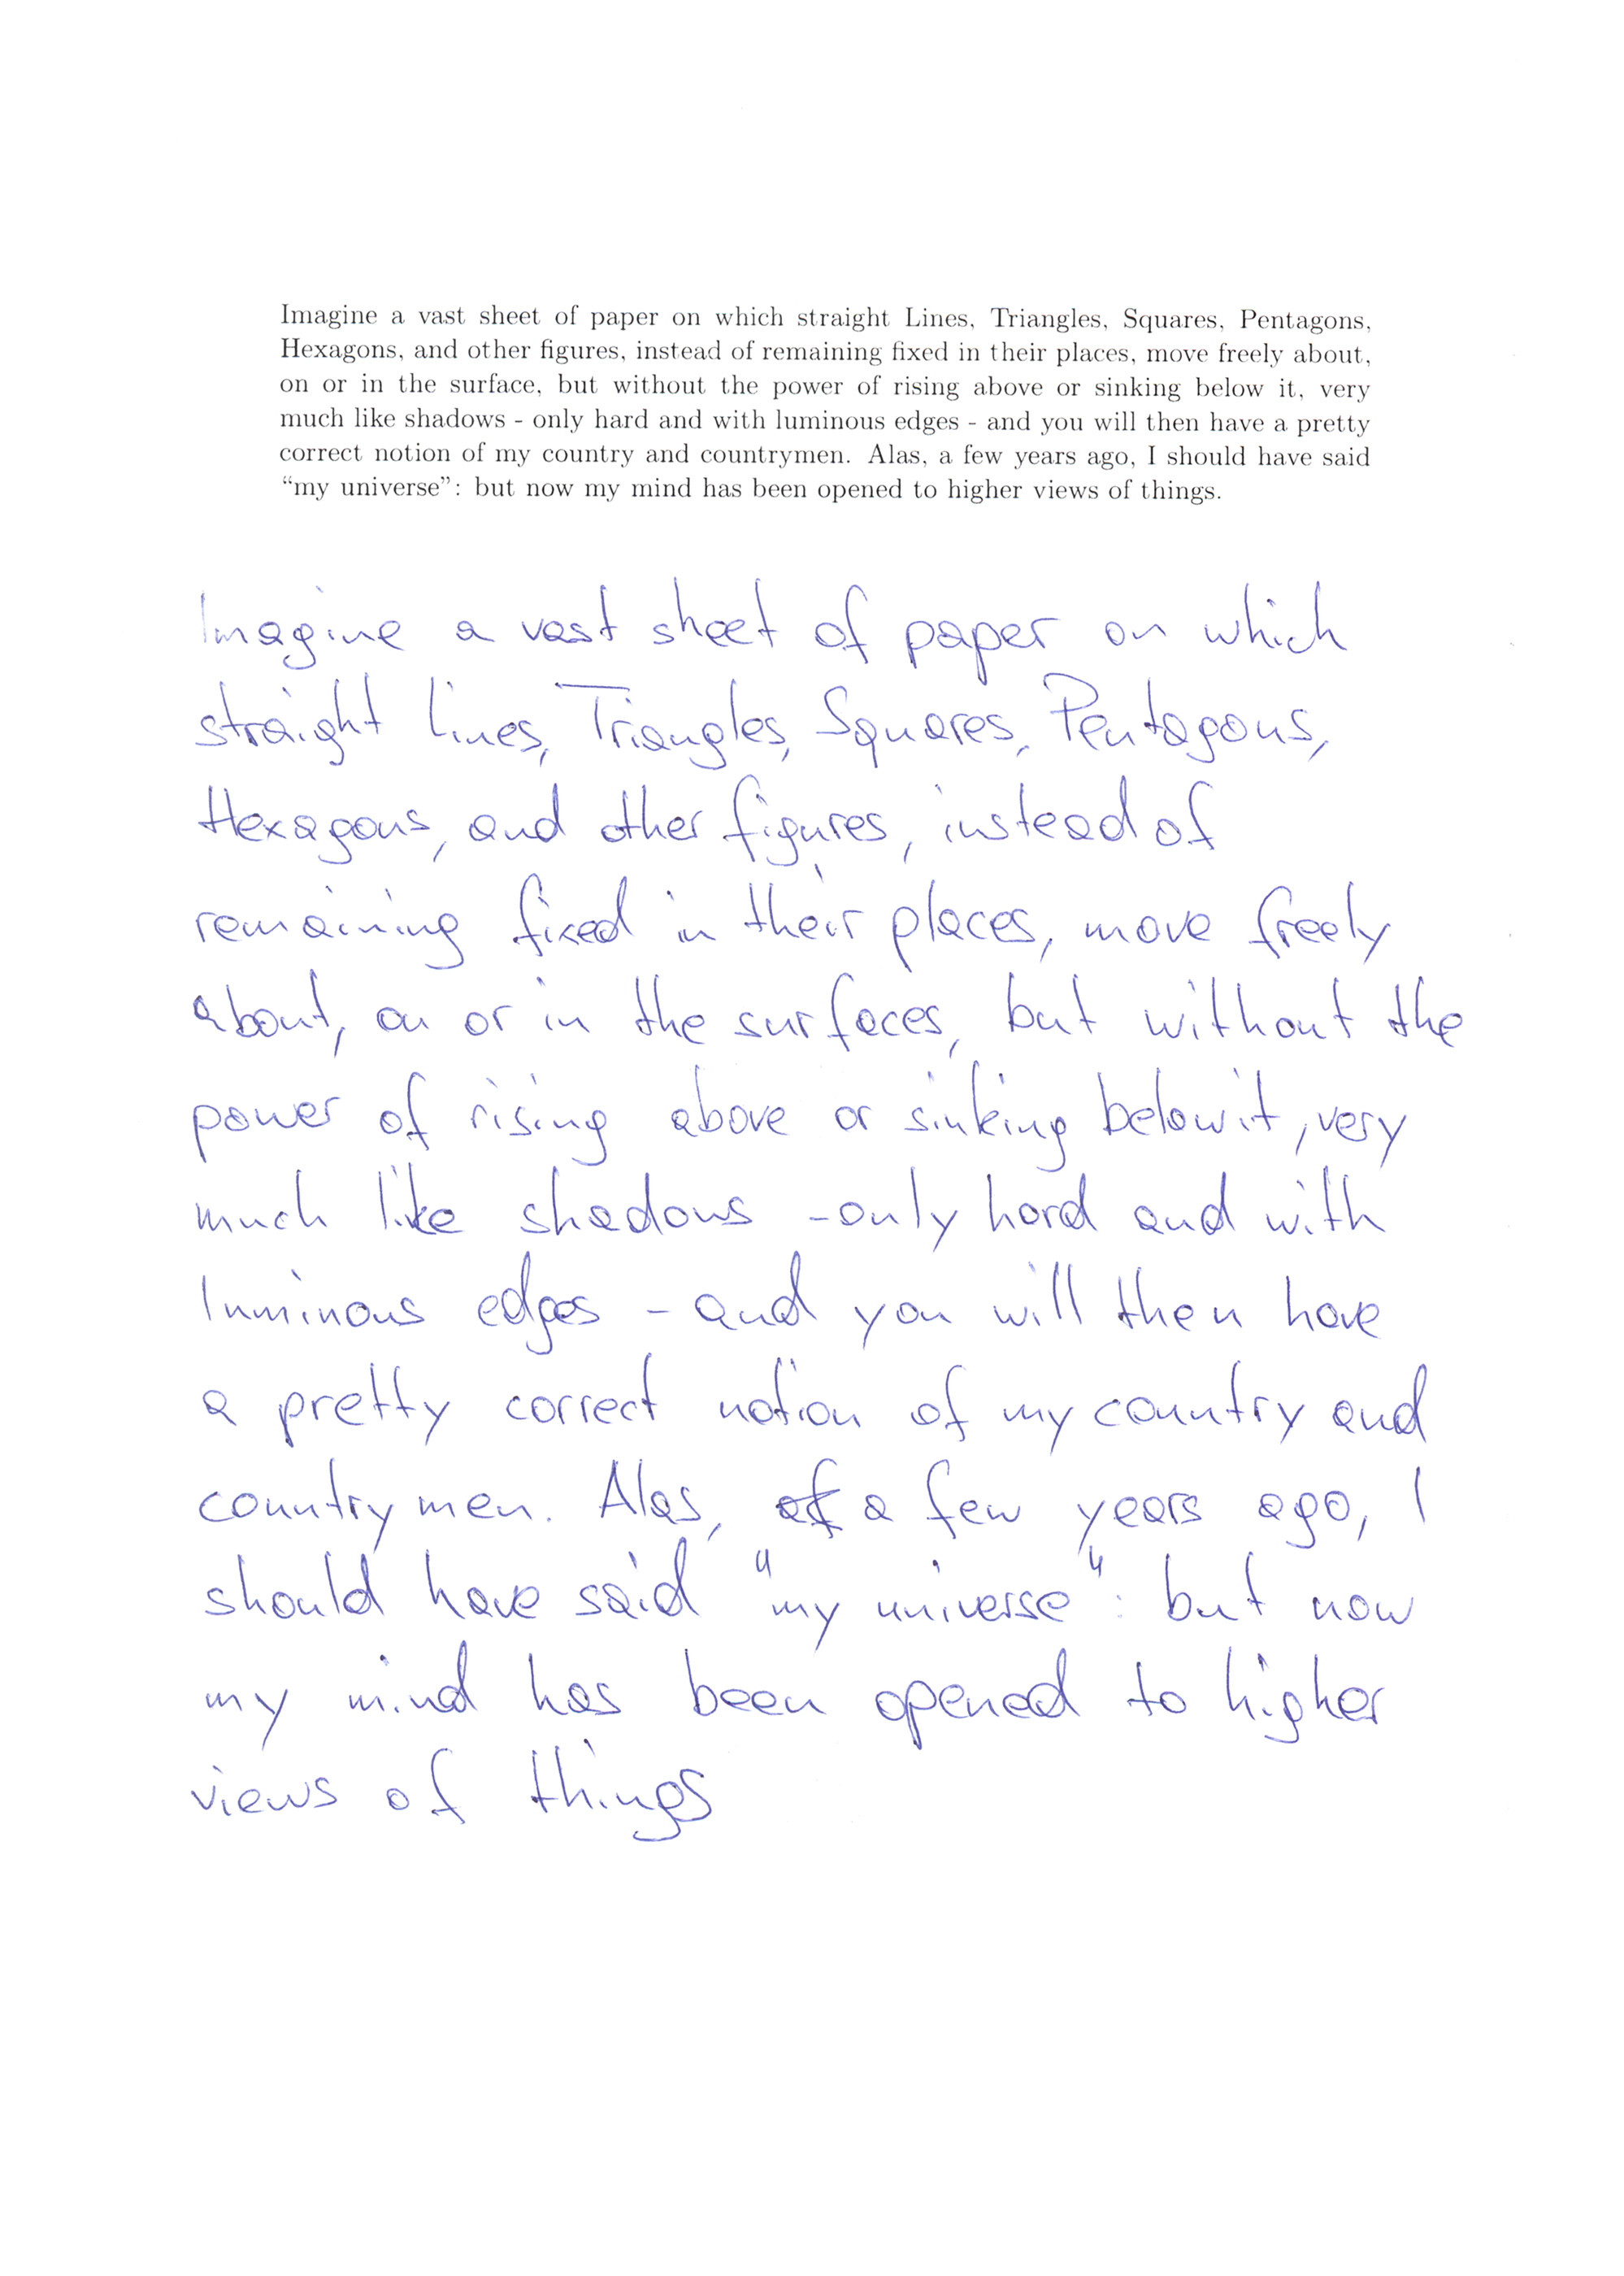 Imagine a vast sheet of paper on which straight Lines, Triangles, Squares, Pentagons,
Hexagons, and other figures, instead of remaining fixed in their places, move freely about,
on or in the surface, but without the power of rising above or sinking below it, very
much like shadows - only hard and with luminous edges - and you will then have a pretty
correct notion of my country and countrymen. Alas, a few years ago, I should have said
“my universe”: but now my mind has been opened to higher views of things.
Imagine a vast sheet of paper on which
straight lines, Triangles, Squares, Pentagons,
Hexagons, and other figures, instead of
remaining fixed in their places, move freely
about, on or in the surfaces, but without the
power of rising above or sinking below it, very
much like shadows - only hard and with
luminous edges - and you will then have
a pretty correct notion of my country and
countrymen. Alas, a few years ago, I
should have said "my universe": but now
my mind has been opened to higher
views of things